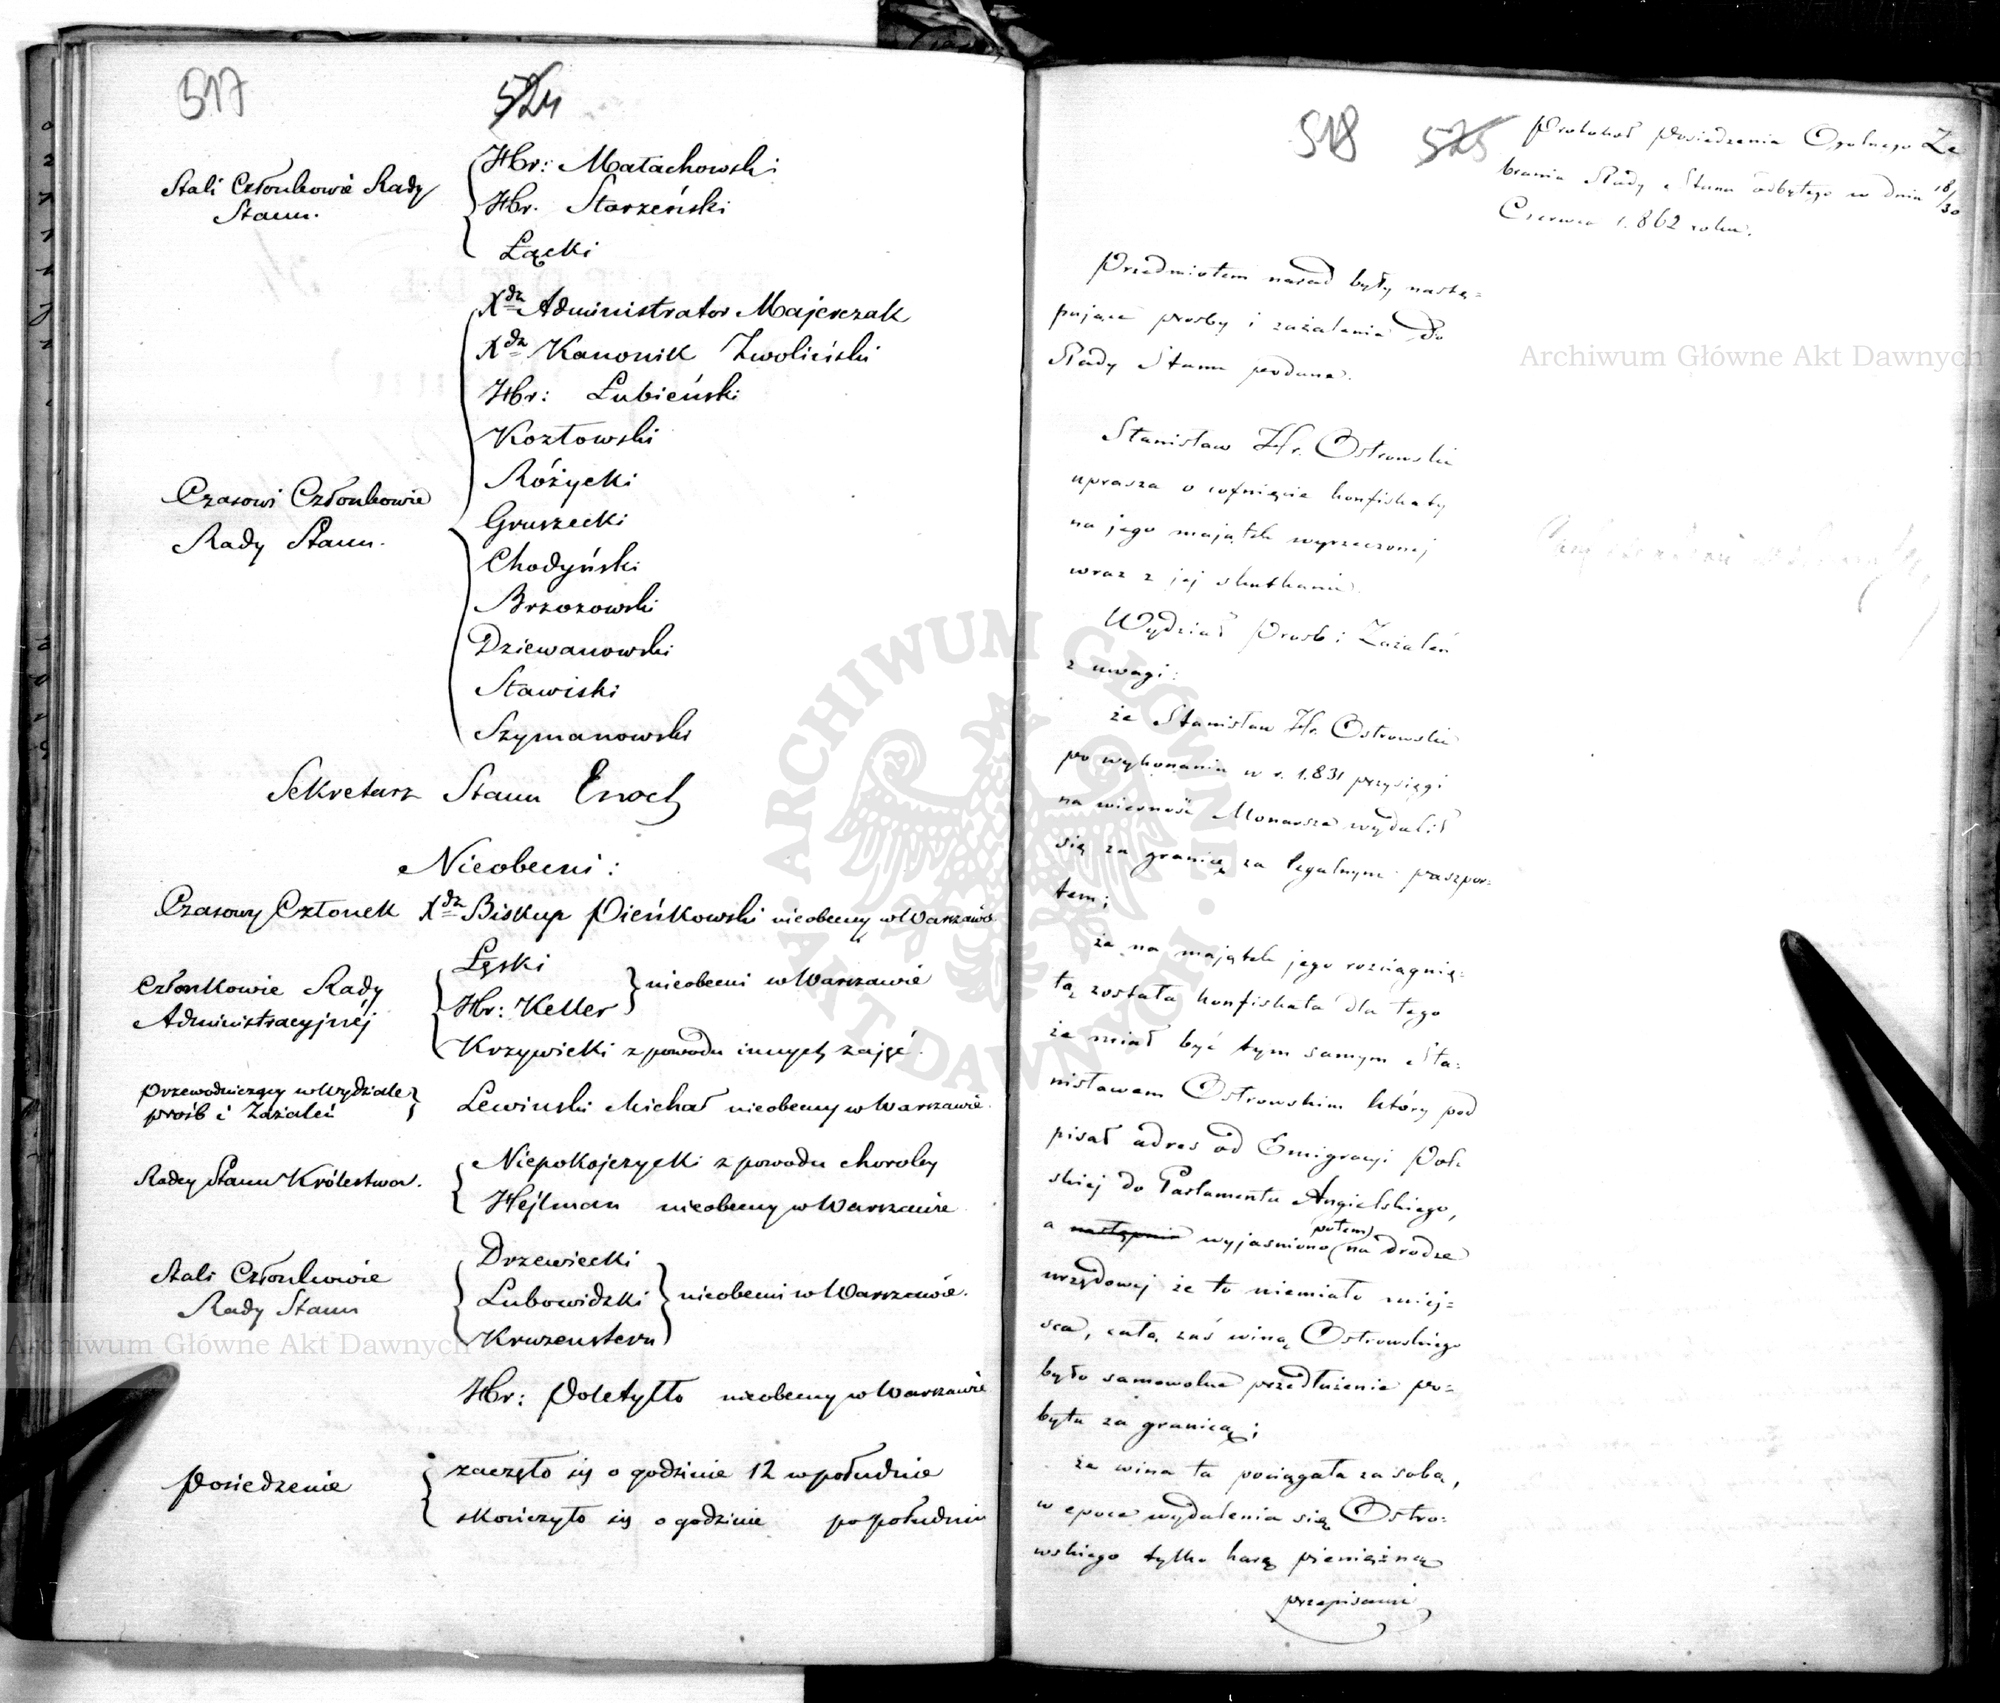 517 524
Stali Członkowie Rady
Stanu.
Hr: Małachowski
Hr. Starzeński
Łącki
Czasowi Członkowie
Rady Stanu.
Xdz Administrator Majerczak
Xdz Kanonik Zwoliński
Hr: Łubieński
Kozłowski
Różycki
Gruszecki
Chodyński
Brzozowski
Dziewanowski
Stawiski
Szymanowski
Sekretarz Stanu Enoch
Nieobecni:
Czasowy Członek Xdz Biskup Pieńkowski nieobecny w Warszawie
Członkowie Rady
Administracyjnej
Łęski
Hr: Keller
nieobecni w Warszawie
Krzywicki z powodu innych zajęć.
Przewodniczący w Wydziale
próśb i Zażaleń
Lewinski Michał nieobecny w Warszawie.
Radcy Stanu Królestwa.
Niepokojczycki z powodu choroby
Hejlman nieobecny w Warszawie
Stali Członkowie
Rady Stanu
Drzewiecki
Lubowidzki
Kruzenstern
nieobecni w Warszawie.
Hr: Poletyłło nieobecny w Warszawie
Posiedzenie
zaczęło się o godzinie 12 w południe
skończyło się o godzinie po południu
518 525
Protokoł Posiedzenia Ogolnego Ze
brania Rady Stanu odbytego w dniu 18/30
Czerwca 1.862 roku.
Przedmiotem narad były nastę=
pujące prosby i zażalenia do
Rady Stanu podane.
Stanisław Hr. Ostrowski
uprasza o cofnięcie konfiskaty
na jego majątek wyrzeczonej
wraz z jej skutkami.
Wydział Prosb i Zażaleń
z uwagi:
że Stanisław Hr. Ostrowski
po wykonaniu w r. 1.831 przysięgi
na wierność Monarsze wydalił
się za granicę za legalnym paszpor=
tem;
że na majątek jego rozciągnię=
tą została konfiskata dla tego
że miał być tym samym Sta=
nisławem Ostrowskim który pod
pisał adres od Emigracyi Pol
skiej do Parlamentu Angielskiego,
a następnie wyjasniono (potem) na drodze
urzędowej że to niemiało miej=
sca, całą zaś winą Ostrowskiego
było samowolne przedłużenie po=
bytu za granicą;
że wina ta pociągała za sobą,
w epoce wydalenia się Ostro=
wskiego tylko karę pieniężną
przepisami
Archiwum Główne Akt Dawnych
Archiwum Główne Akt Dawnych
ARCHIWUM GŁÓWNE
AKT DAWNYCH